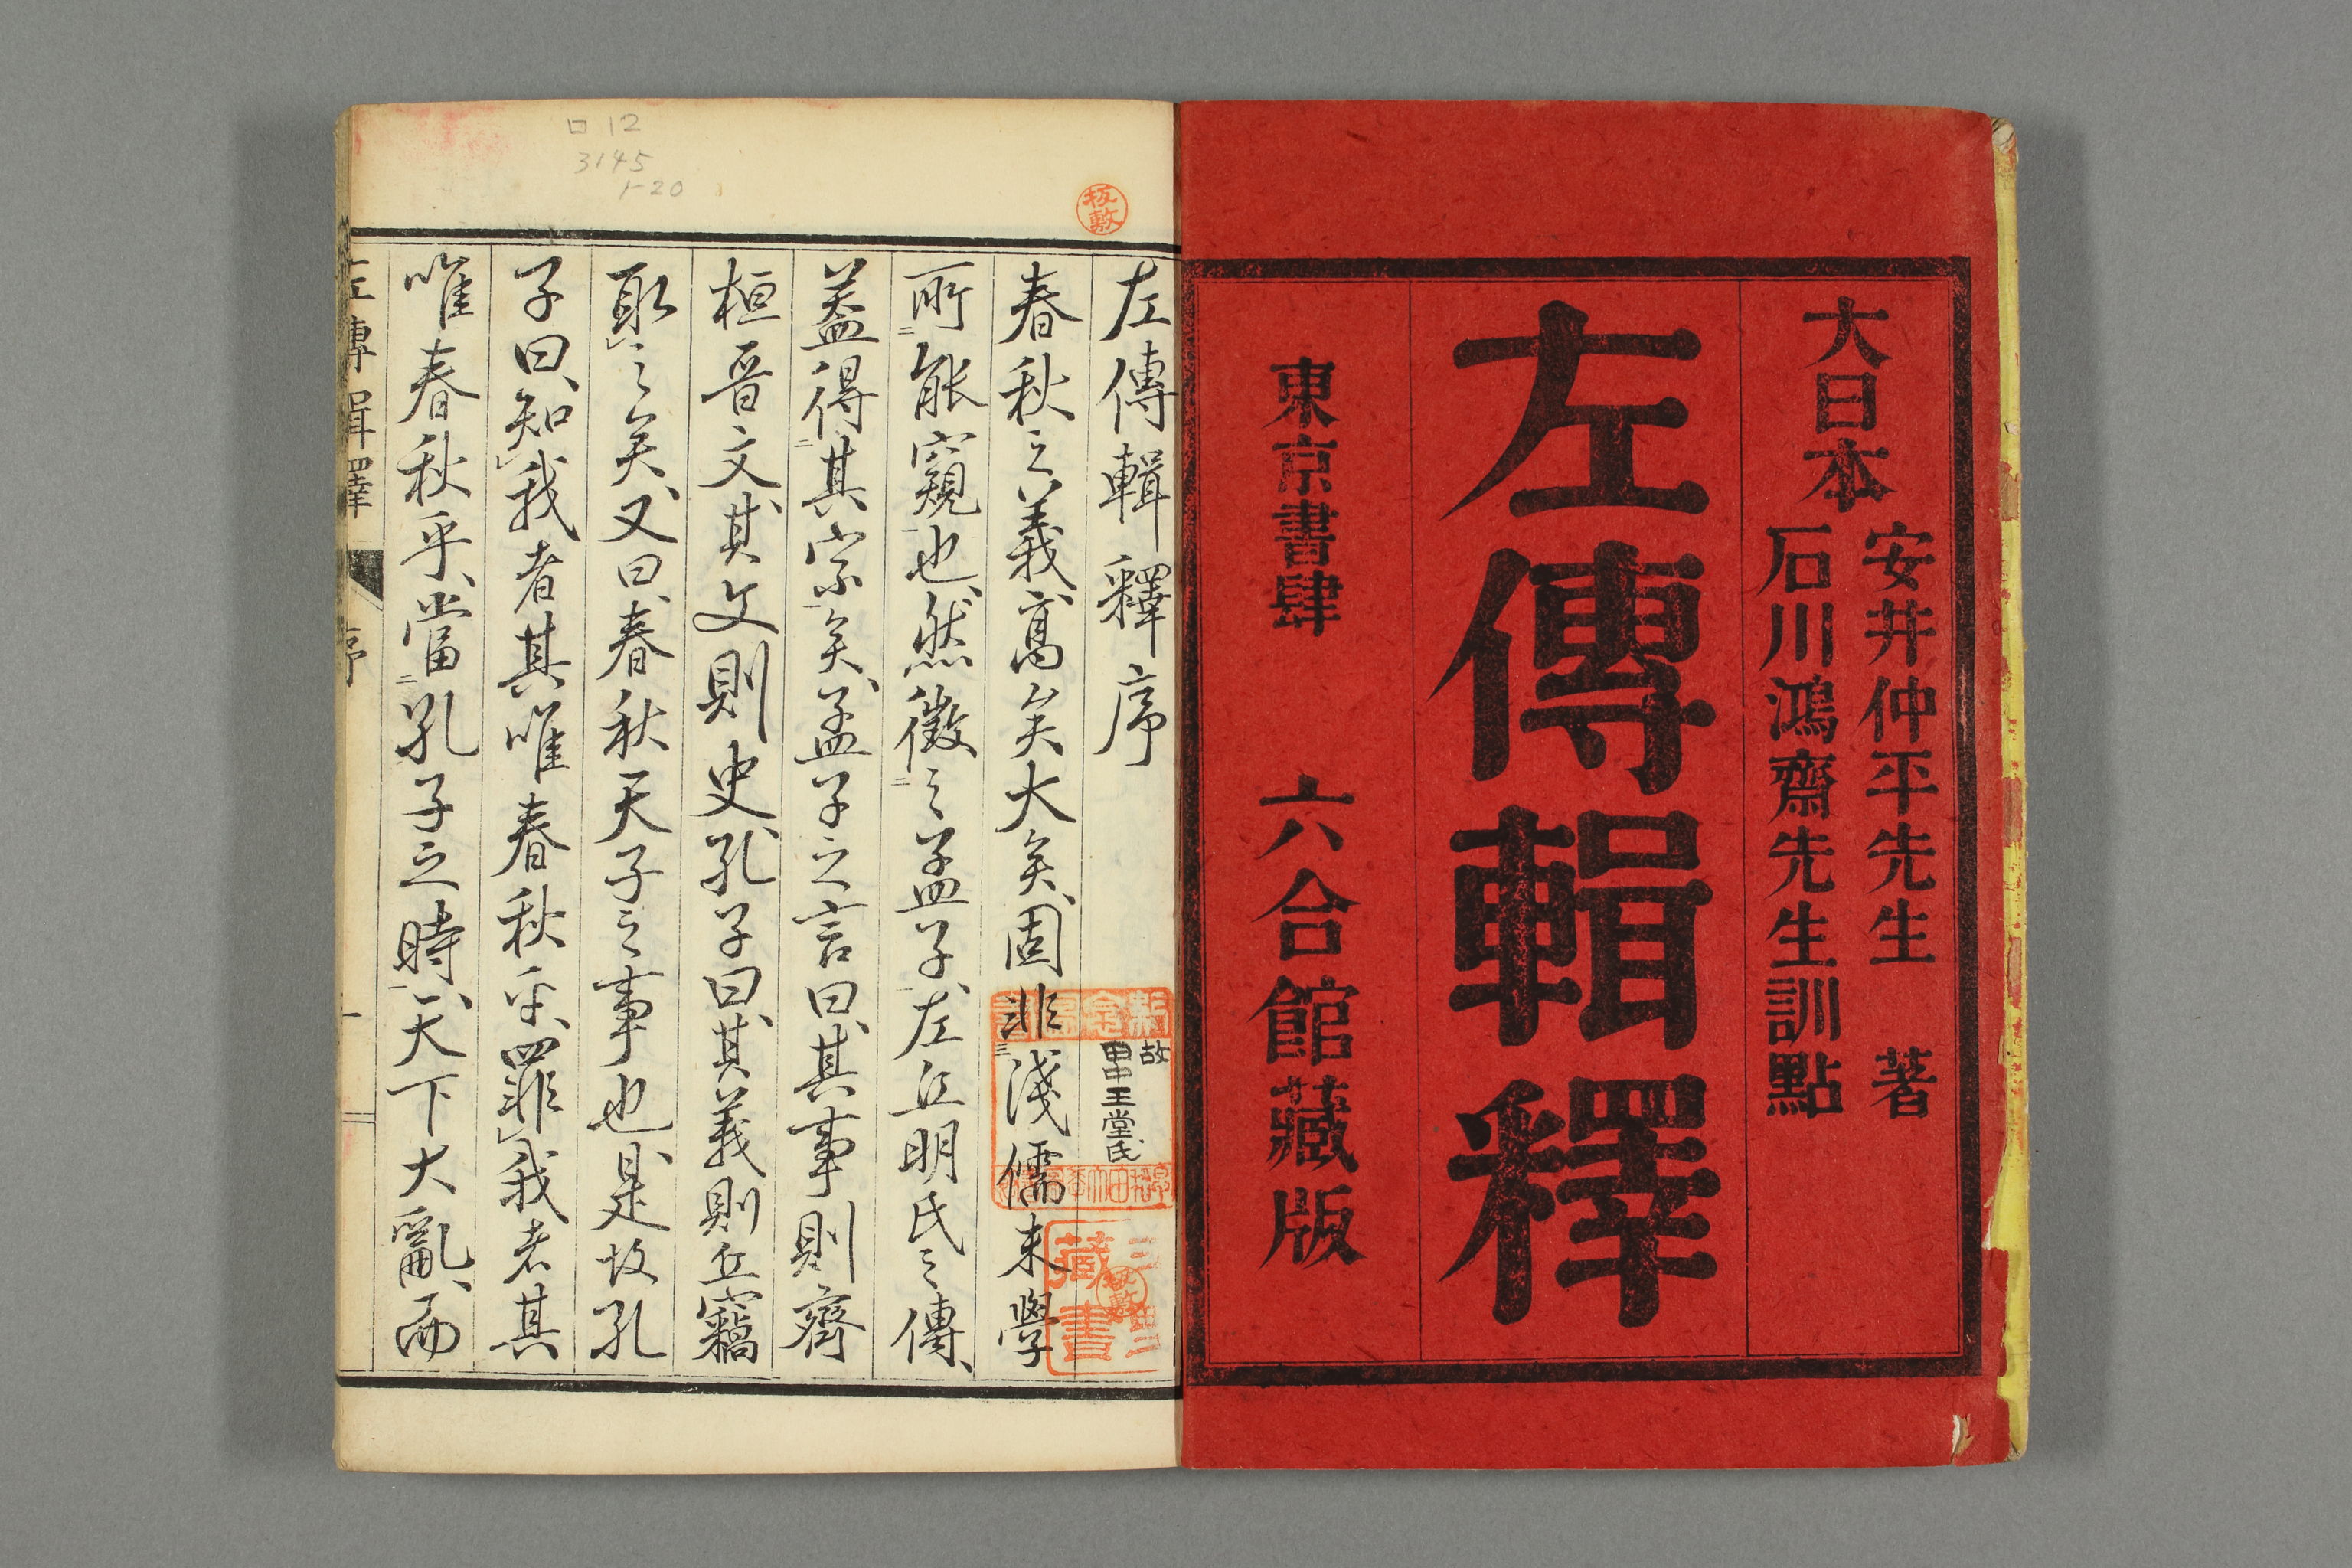 大日本
安井仲平先生 著
石川鴻齋先生訓點
左傳輯釋
東京書肆 六合館藏版
口 12
3145
1-20
左傳輯釋序
春秋之義高矣大矣固非淺儒末學
所能窺也然徵之孟子左丘明氏之傳
蓋得其宗矣孟子之言曰其事則齊
桓晋文其文則史孔子曰其義則丘竊
取之矣又曰春秋天子之事也是故孔
子曰知我者其唯春秋乎罪我者其
唯春秋乎當孔子之時天下大亂而
左傳輯釋 序 一
故
畠中王堂氏
藏書